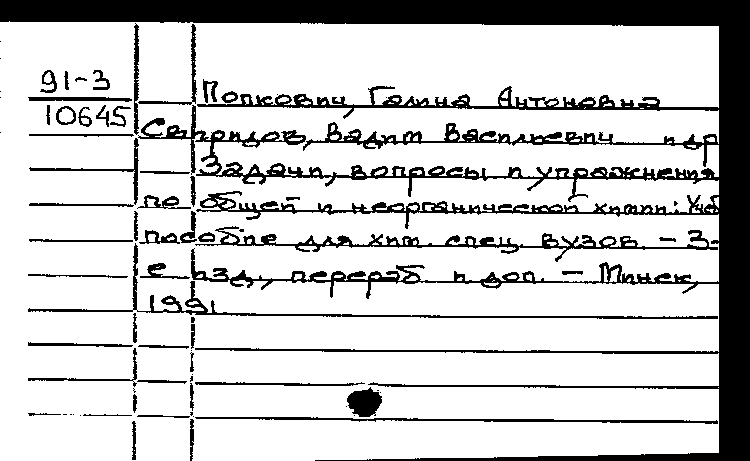 91-3
10645
Попкович, Галина Антоновна
Свиридов, Вадим Васильевич и др
Задачи, вопросы и упражнения
по общей и неорганической химии: Учеб
пособие для хим. спец. вузов. - 3-
е изд., перераб и доп. - Минск,
1991